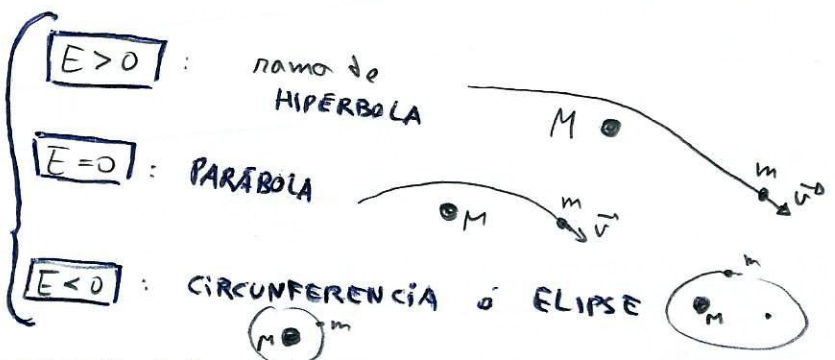 E > 0 : rama de
HIPÉRBOLA
M
m
v
E = 0 : PARÁBOLA
M
m
v
E < 0 : CIRCUNFERENCIA ó ELIPSE
M m
M
m